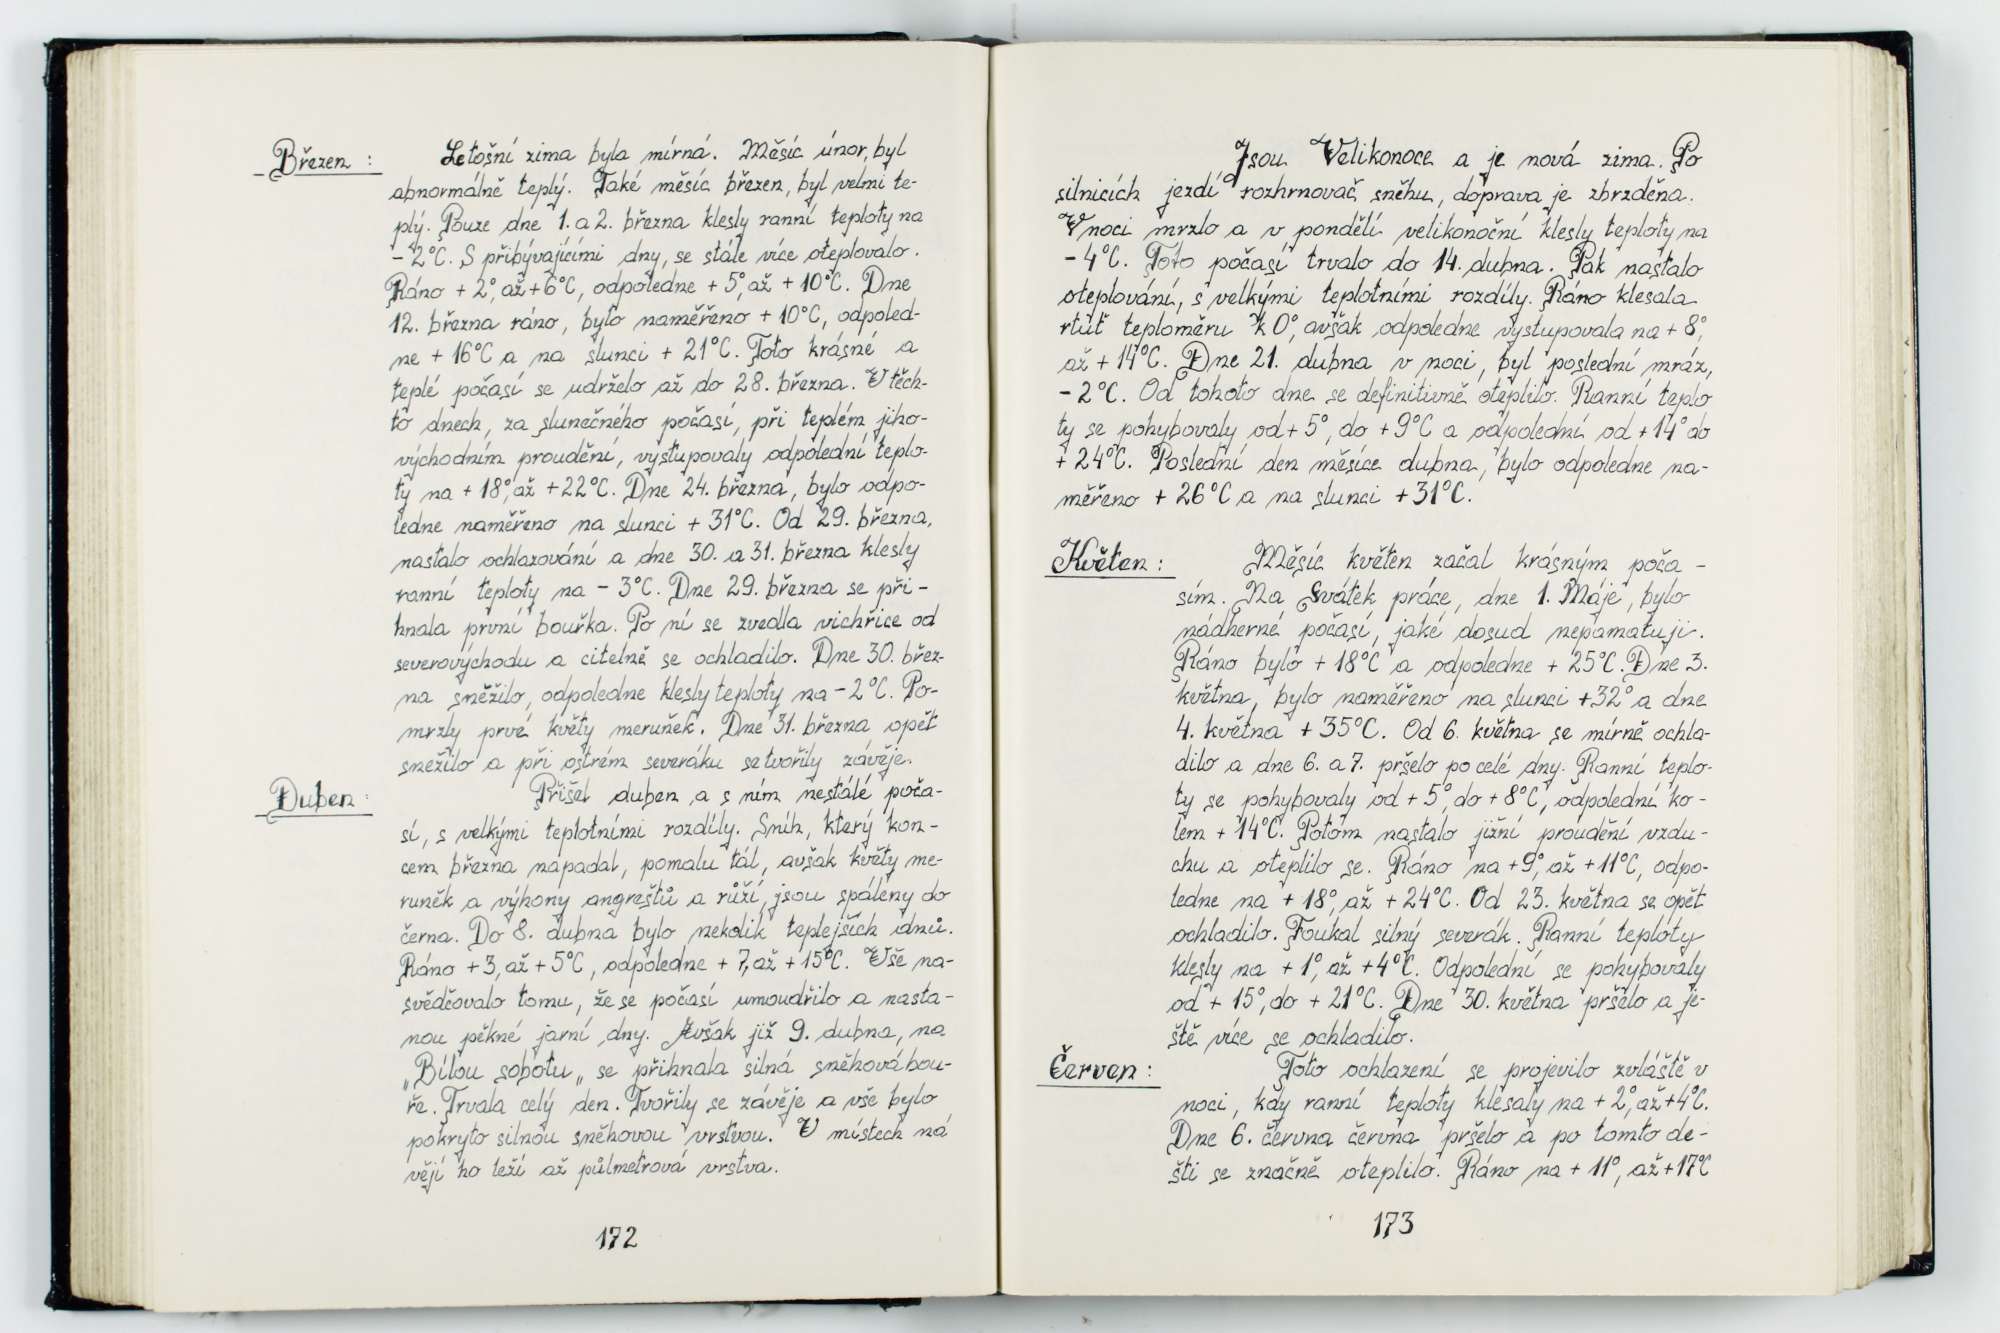 Březen : Letošní zima byla mírná. Měsíc únor, byl
abnormálně teplý. Také měsíc březen, byl velmi te-
plý. Pouze dne 1. a 2. března klesly ranní teploty na
- 2°C. S přibývajícími dny, se stále více oteplovalo.
Ráno + 2°, až +6°C, odpoledne + 5°, až + 10°C. Dne
12. března ráno, bylo naměřeno + 10°C, odpoled-
ne + 16°C a na slunci + 21°C. Toto krásné a
teplé počasí se udrželo až do 28. března. V těch-
to dnech, za slunečného počasí, při teplém jiho-
východním proudění, vystupovaly odpolední teplo-
ty na + 18°, až +22°C. Dne 24. března, bylo odpo-
ledne naměřeno na slunci + 31°C. Od 29. března,
nastalo ochlazování a dne 30. a 31. března klesly
ranní teploty na - 3°C. Dne 29. března se při-
hnala první bouřka. Po ní se zvedla vichřice od
severovýchodu a citelně se ochladilo. Dne 30. břez-
na sněžilo, odpoledne klesly teploty na - 2°C. Po-
mrzly prvé květy meruněk. Dne 31. března opět
sněžilo a při ostrém severáku se tvořily závěje.
Duben : Přišel duben a s ním nestálé poča-
sí, s velkými teplotními rozdíly. Sníh, který kon-
cem března napadal, pomalu tál, avšak květy me-
runěk a výhony angreštů a růží, jsou spáleny do
černa. Do 8. dubna bylo nekolik teplejších dnů.
Ráno +3, až + 5°C, odpoledne + 7, až + 15°C. Vše na-
svědčovalo tomu, že se počasí umoudřilo a nasta-
nou pěkné jarní dny. Avšak již 9. dubna, na
„Bílou sobotu„ se přihnala silná sněhová bou-
ře. Trvala celý den. Tvořily se závěje a vše bylo
pokryto silnou sněhovou vrstvou. V místech ná
vějí ho leží až půlmetrová vrstva.
172
Jsou Velikonoce a je nová zima. Po
silnicích jezdí rozhrnovač sněhu, doprava je zbrzděna.
V noci mrzlo a v pondělí velikonoční klesly teploty na
- 4°C. Toto počasí trvalo do 14. dubna. Pak nastalo
oteplování, s velkými teplotními rozdíly. Ráno klesala
rtuť teploměru k 0°, avšak odpoledne vystupovala na + 8°,
až + 14°C. Dne 21. dubna v noci, byl poslední mráz,
- 2°C. Od tohoto dne se definitivně oteplilo. Ranní teplo
ty se pohybovaly od + 5°, do + 9°C a odpolední od + 14° do
+ 24°C. Poslední den měsíce dubna, bylo odpoledne na-
měřeno + 26°C a na slunci + 31°C.
Květen : Měsíc květen začal krásným poča-
sím. Na Svátek práce, dne 1. Máje, bylo
nádherné počasí, jaké dosud nepamatuji.
Ráno bylo + 18°C a odpoledne + 25°C. Dne 3.
května, bylo naměřeno na slunci +32° a dne
4. května + 35°C. Od 6. května se mírně ochla-
dilo a dne 6. a 7. pršelo po celé dny. Ranní teplo-
ty se pohybovaly od + 5°, do + 8°C, odpolední ko-
lem + 14°C. Potom nastalo jižní proudění vzdu-
chu a oteplilo se. Ráno na + 9°, až + 11°C, odpo-
ledne na + 18°, až + 24°C. Od 23. května se opět
ochladilo. Foukal silný severák. Ranní teploty
klesly na + 1°, až +4°C. Odpolední se pohybovaly
od + 15°, do + 21°C. Dne 30. května pršelo a je-
ště více se ochladilo.
Červen : Toto ochlazení se projevilo zvláště v
noci, kdy ranní teploty klesaly na + 2°, až +4°C.
Dne 6. června června pršelo a po tomto de-
šti se značně oteplilo. Ráno na + 11°, až +17°C
173